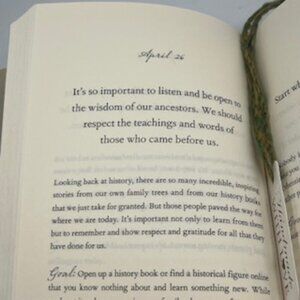 April 26
It's so important to listen and be open to
the wisdom of our ancestors. We should
respect the teachings and words of
those who came before us.
Looking back at history, there are so many incredible, inspiring
stories from our own family trees and from our history books
that we just take for granted. But those people paved the way for
where we are today. It's important not only to learn from them
but to remember and show respect and gratitude for all that they
have done for us.
Goal: Open up a history book or find a historical figure online
that you know nothing about and learn something new. We
Start wh